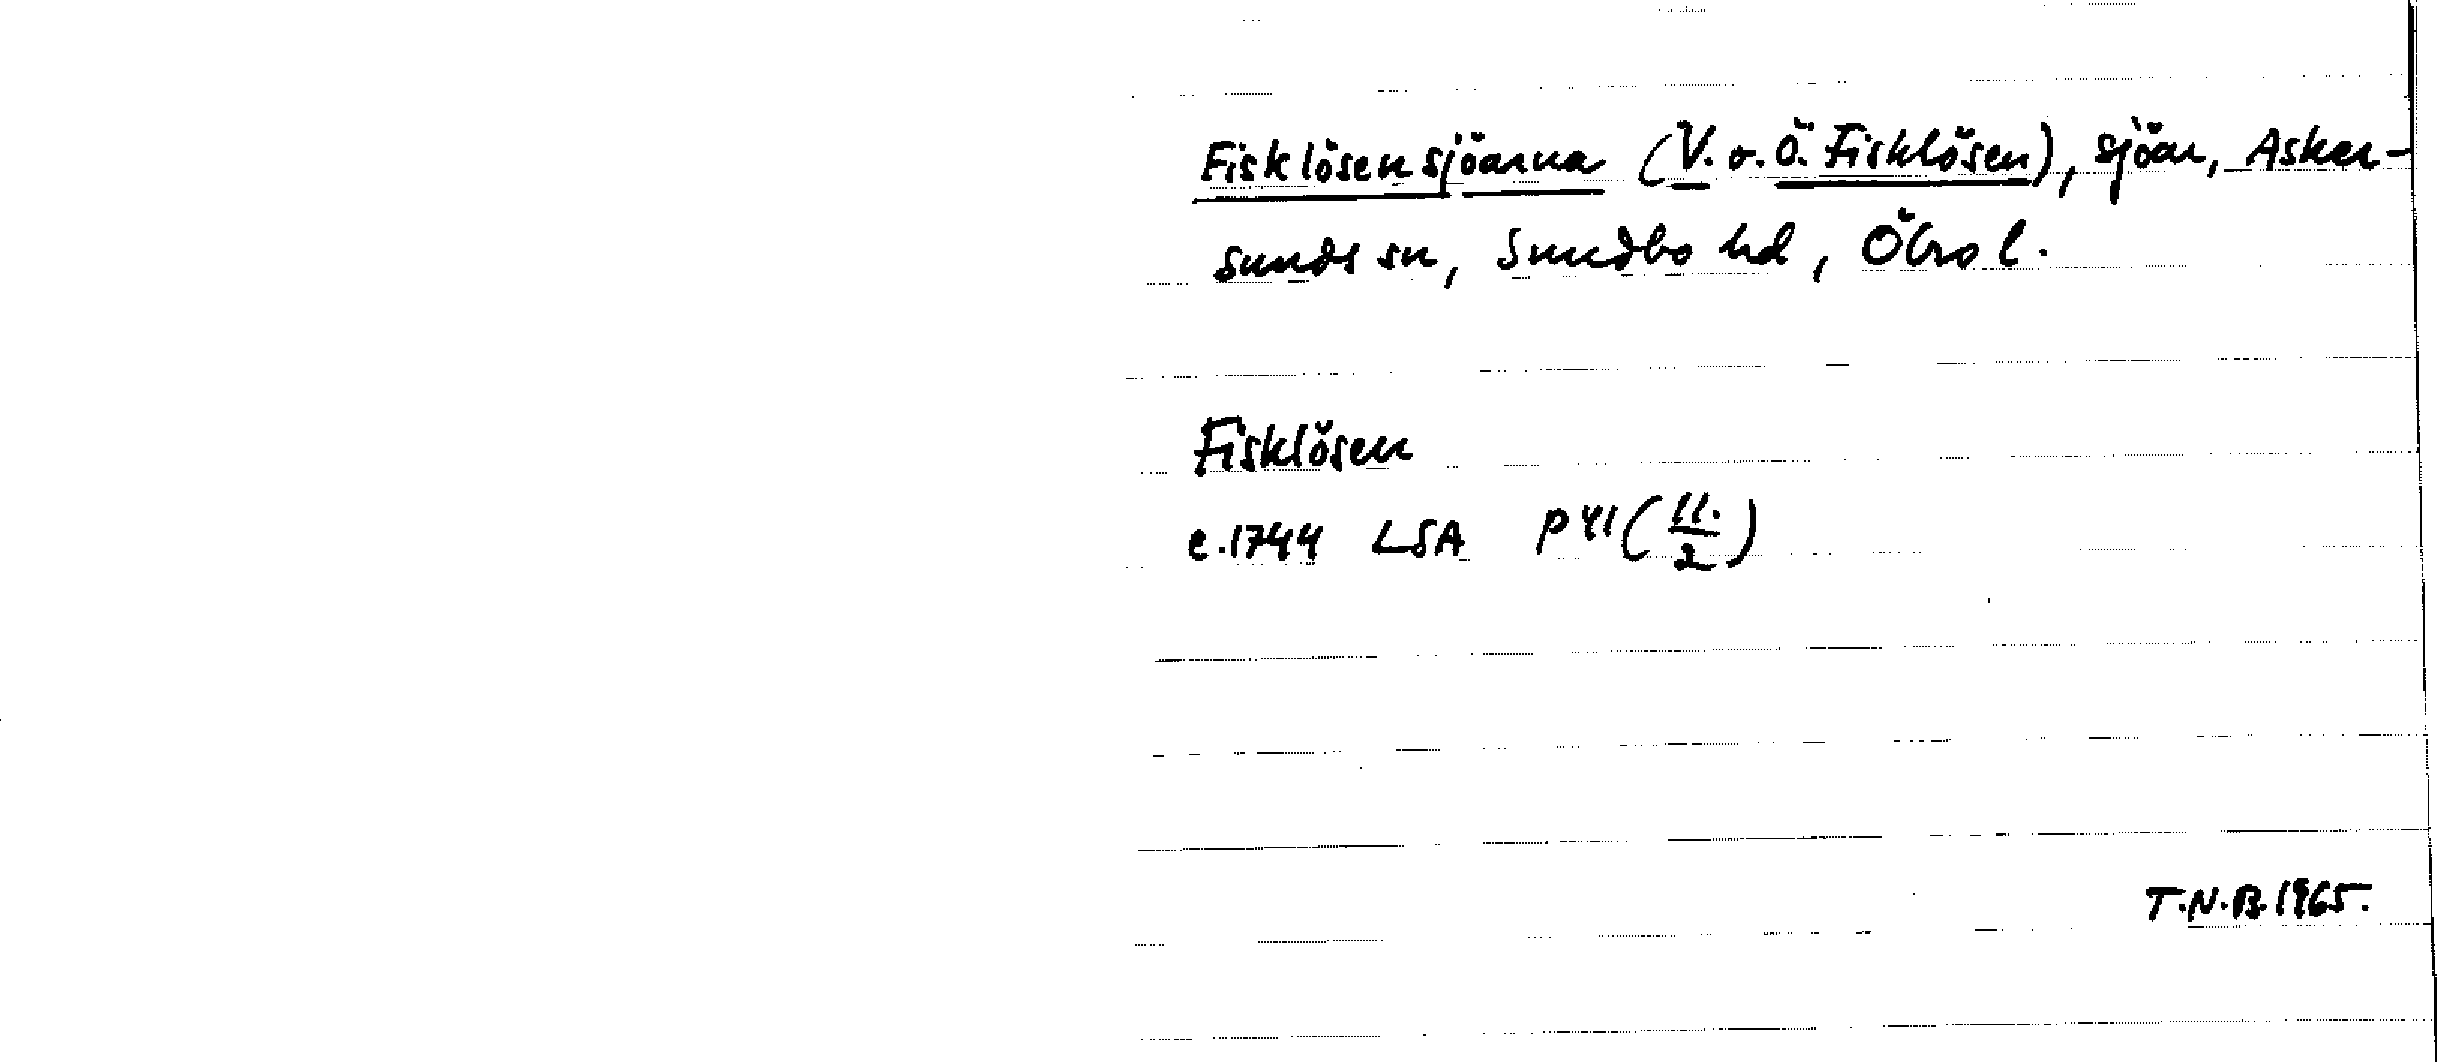 Fisklösensjöarna (V. o. Ö. Fisklösen), sjöar, Asker-
sunds sn, Sundbo hd, Öbro l.
Fisklösen
c. 1744 LSA P41 (11./2)
T.N.B. 1965.